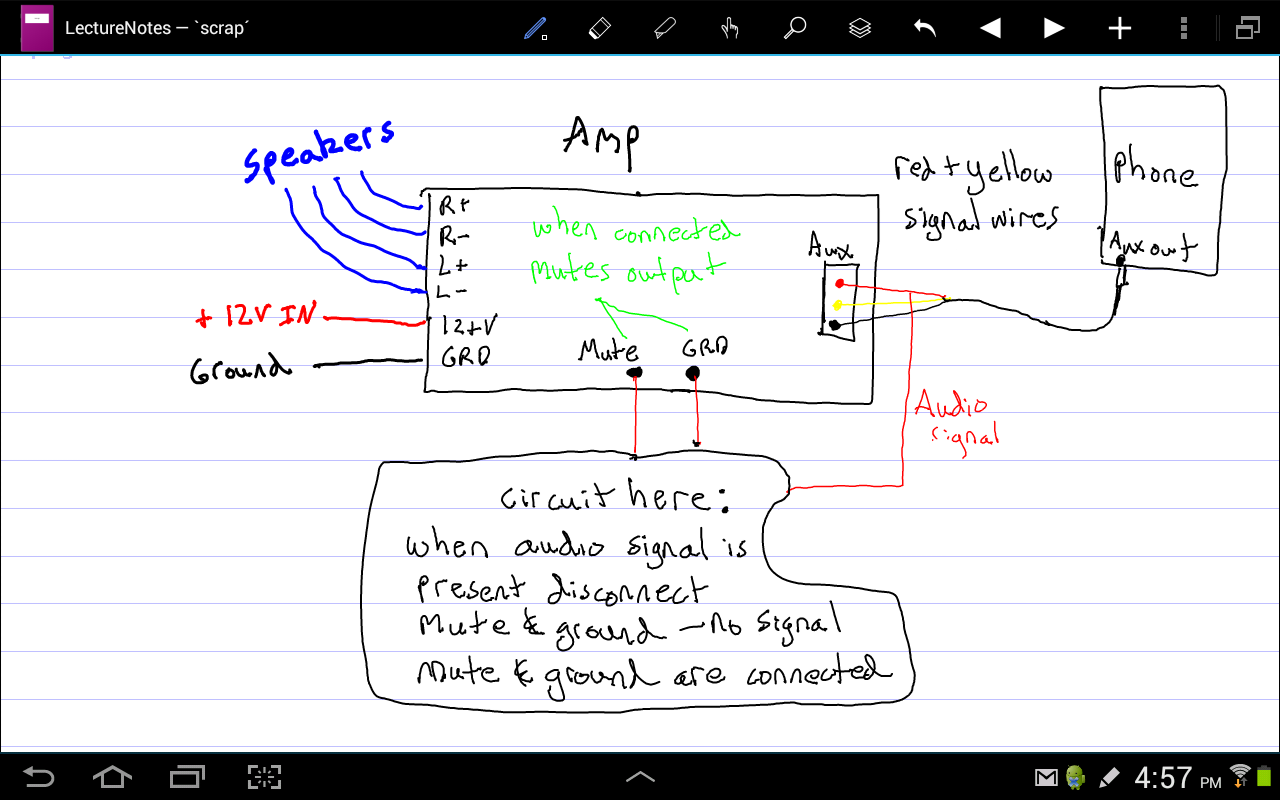 LectureNotes — `scrap´
Amp
Speakers
R+
R-
L+
L-
+ 12V IN
12+V
Ground
GRD
when connected
Mutes output
Mute
GRD
Aux
red + yellow
signal wires
Phone
Aux out
Audio
signal
circuit here:
when audio signal is
Present disconnect
Mute & ground – no signal
Mute & ground are connected
4:57 PM